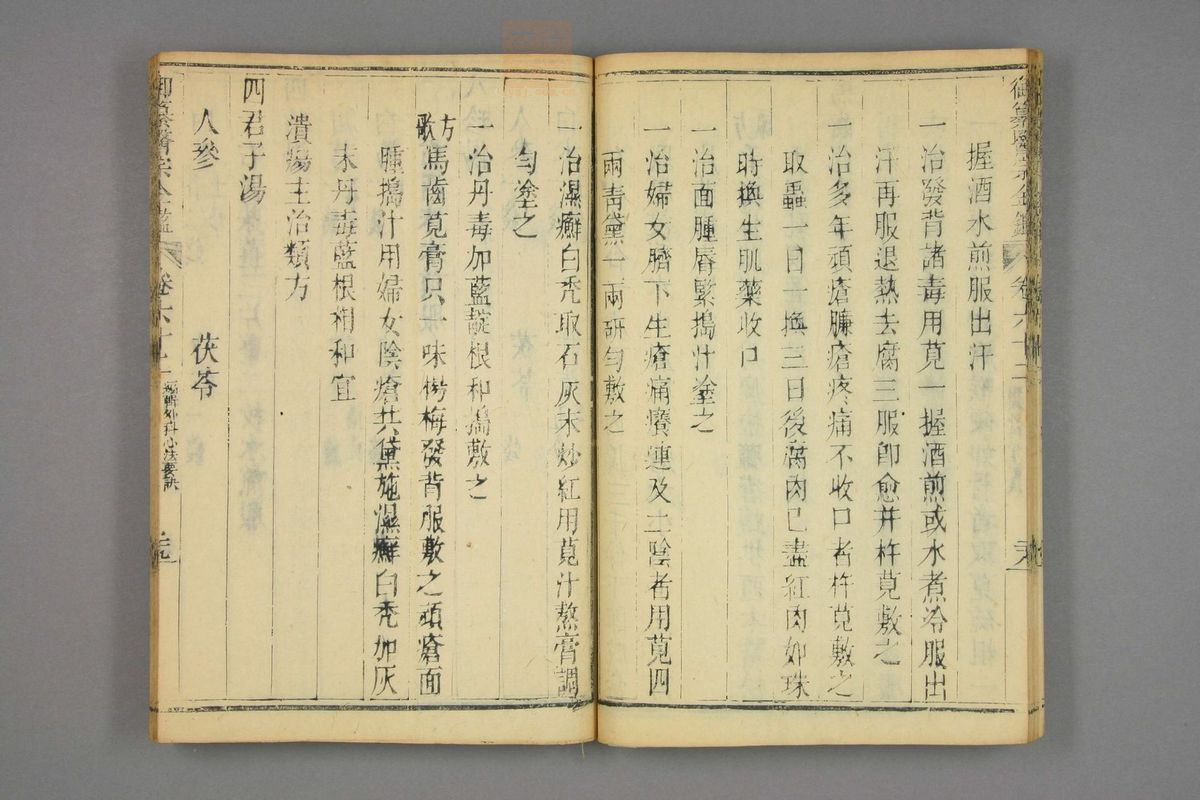 握酒水煎服出汗
一治發背諸毒用莧一握酒煎或水煮冷服出
汗再服退熱去腐三服卽愈并杵莧敷之
一治多年頑瘡臁瘡疼痛不收口者杵莧敷之
取蟲一日一換三日後腐肉已盡紅肉如珠
時換生肌藥收口
一治面腫唇緊搗汁塗之
一治婦女臍下生瘡痛癢連及二陰者用莧四
兩青黛一兩研勻敷之
一治濕癬白禿取石灰末炒紅用莧汁熬膏調
勻塗之
一治丹毒加藍靛根和搗敷之
方歌
馬齒莧膏只一味楊梅發背服敷之頑瘡面
腫搗汁用婦女陰瘡共黛施濕癬白禿加灰
末丹毒藍根相和宜
潰瘍主治類方
四君子湯
人參 茯苓
御纂醫宗金鑑 卷六十二 編輯外科心法要訣